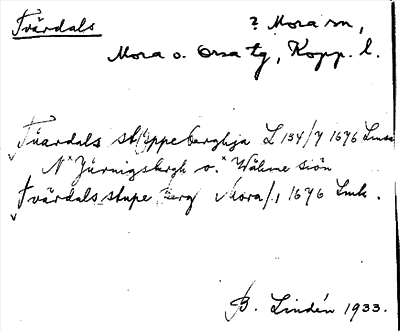 Tvärdals ? Mora sn,
Mora o. Orsa tg, Kopp. l.
Tuardals st(uppe berghja L 134/7 1676 Lmsa
N ˣJürnigsbergh o. ˣWåhme siön
Tvärdals stupe berg Mora/1 1676 Lmk.
B. Lindén 1933.